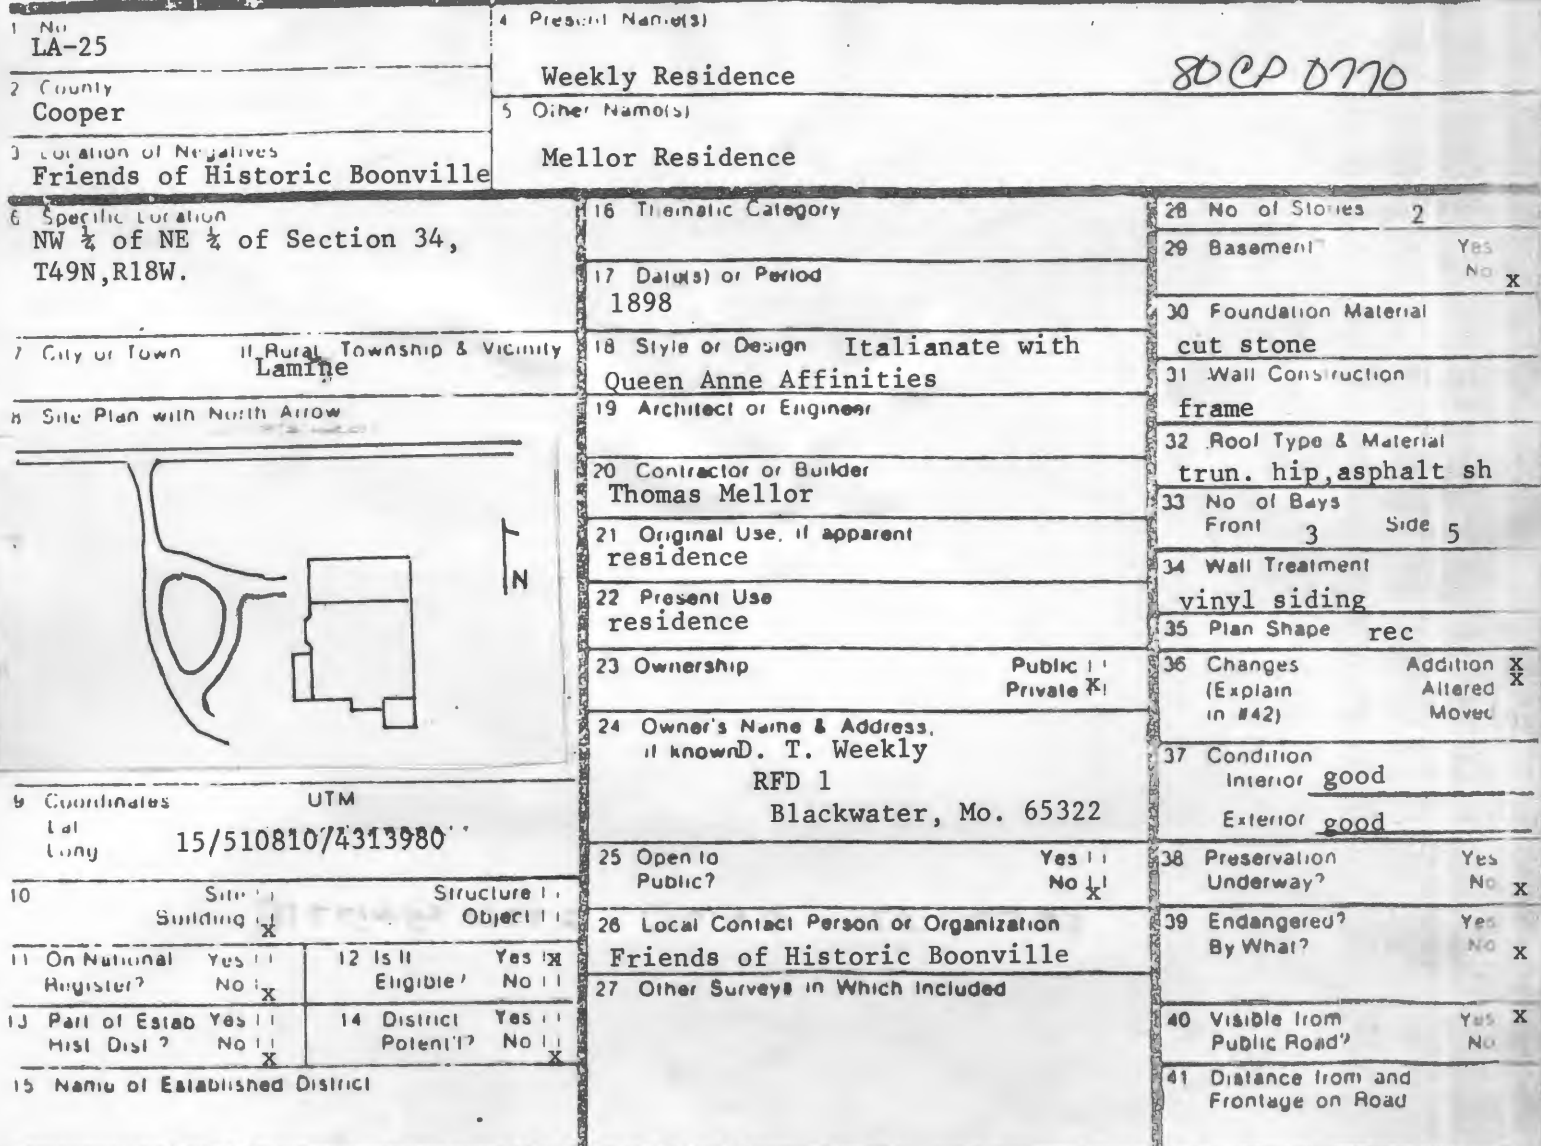 1 No
LA-25
2 County
Cooper
3 Location of Negatives
Friends of Historic Boonville
4 Present Name(s)
Weekly Residence
80CP0770
5 Other Name(s)
Mellor Residence
6 Specific Location
NW ¼ of NE ¼ of Section 34,
T49N,R18W.
7 City or Town If Rural, Township & Vicinity
Lamine
8 Site Plan with North Arrow
N
9 Coordinates UTM
Lat
Long
15/510810/4313980
10 Site Structure
Building X Object
11 On National Yes
Register? No X
12 Is It Yes X
Eligible? No
13 Part of Estab Yes
Hist Dist? No X
14 District Yes
Potent'l? No X
15 Name of Established District
16 Thematic Category
17 Date(s) or Period
1898
18 Style or Design Italianate with
Queen Anne Affinities
19 Architect or Engineer
20 Contractor or Builder
Thomas Mellor
21 Original Use, if apparent
residence
22 Present Use
residence
23 Ownership Public
Private X
24 Owner's Name & Address,
if known D. T. Weekly
RFD 1
Blackwater, Mo. 65322
25 Open to Yes
Public? No X
26 Local Contact Person or Organization
Friends of Historic Boonville
27 Other Surveys in Which Included
28 No of Stories 2
29 Basement? Yes
No X
30 Foundation Material
cut stone
31 Wall Construction
frame
32 Roof Type & Material
trun. hip,asphalt sh
33 No of Bays
Front 3 Side 5
34 Wall Treatment
vinyl siding
35 Plan Shape rec
36 Changes Addition X
(Explain Altered X
in #42) Moved
37 Condition
Interior good
Exterior good
38 Preservation Yes
Underway? No X
39 Endangered? Yes
By What? No X
40 Visible from Yes X
Public Road? No
41 Distance from and
Frontage on Road